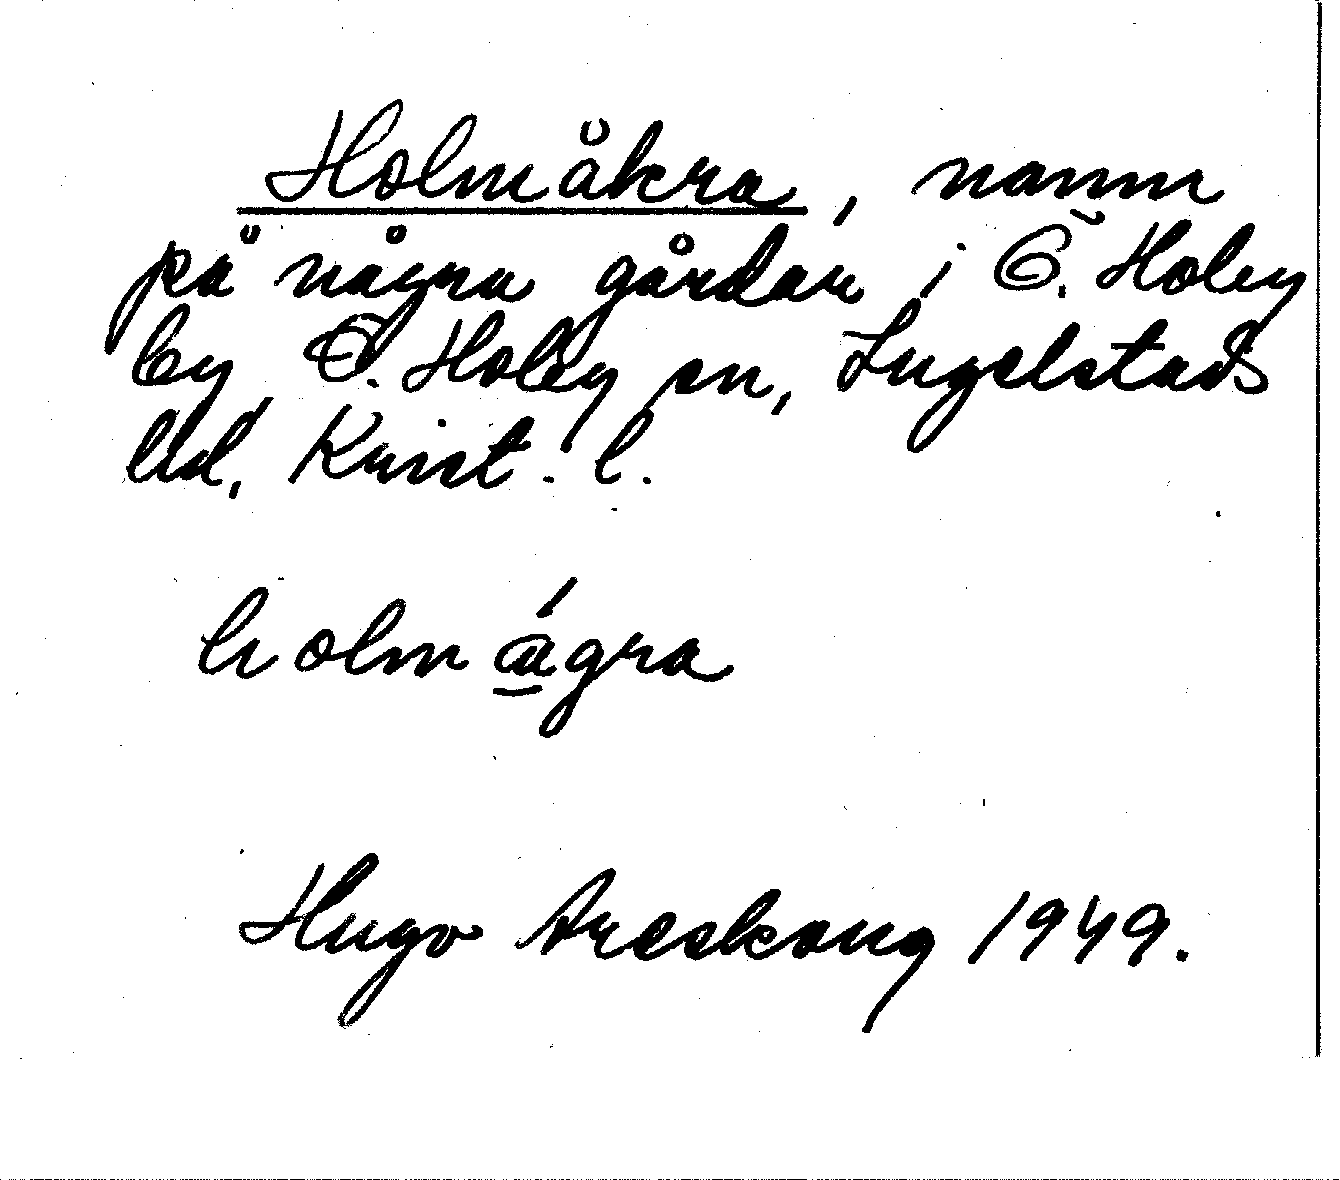 Holmåkra, namn
på några gårdar i Ö. Hoby
by, Ö. Hoby sn, Ingelstads
hd, Krist. l.
holmágra
Hugo Areskoug 1949.